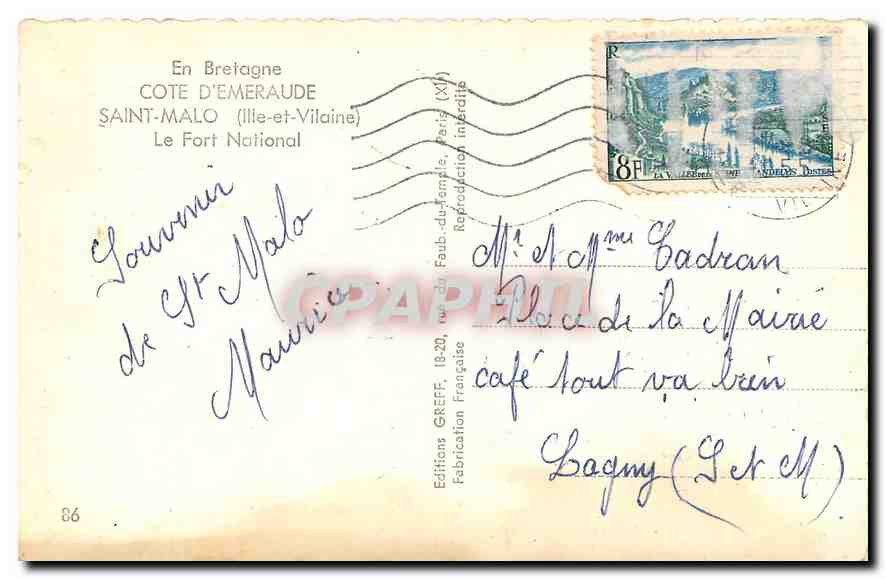 En Bretagne
COTE D'EMERAUDE
SAINT-MALO (Ille-et-Vilaine)
Le Fort National
Souvenir
de St Malo
Maurice
86
Editions GREFF, 18-20, rue du Faub.-du-Temple, Paris (XIe)
Fabrication Française
Reproduction interdite
CPAPHIL
RF
8F
LA VALLEE DE LA SEINE AUX ANDELYS POSTES
Mr et Mme Cadran
Place de la Mairie
café tout va bien
Lagny (S et M)